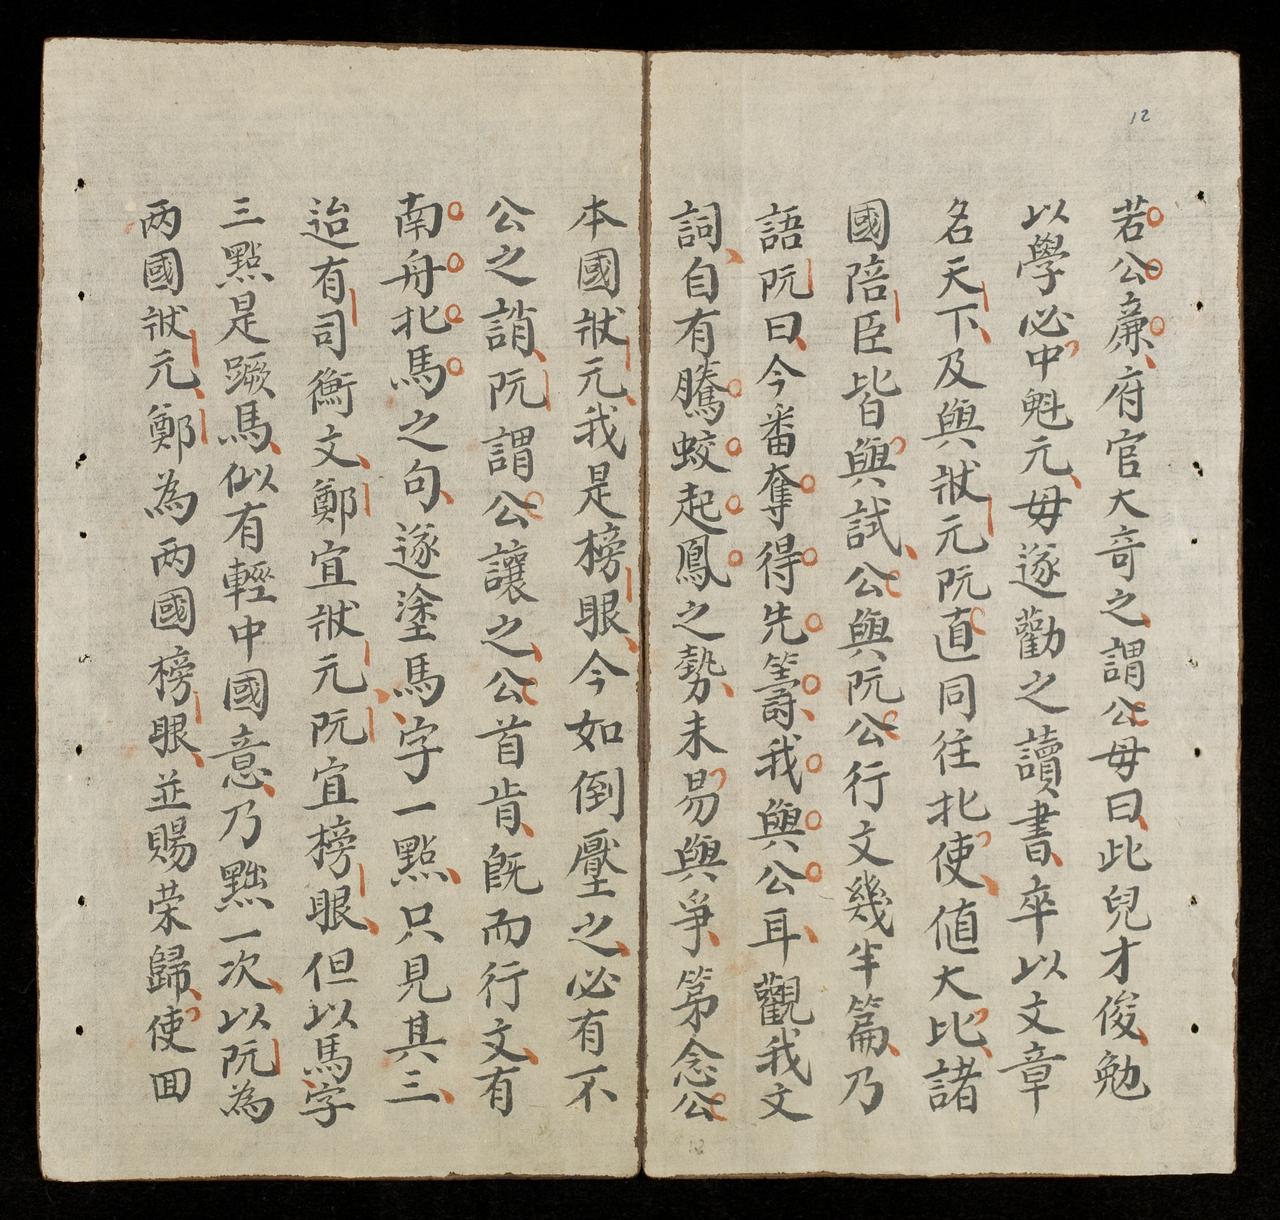 12
若公廉府官大奇之謂公毋曰此兒才俊勉
以學必中魁元毋遂勸之讀書卒以文章
名天下及與狀元阮直同往北使值大比諸
國陪臣皆與試公與阮公行文幾半篇乃
語阮曰今番奪得先籌我與公耳觀我文
詞自有騰蛟起鳳之勢未易與爭第念公
本國狀元我是榜眼今如倒壓之必有不
公之誚阮謂公讓之公首肯既而行文有
南舟北馬之句遂塗馬字一點只見其三
迨有司衡文鄭宜狀元阮宜榜眼但以馬字
三點是蹶馬似有輕中國意乃黜一次以阮為
两國狀元鄭為两國榜眼並賜荣歸使回